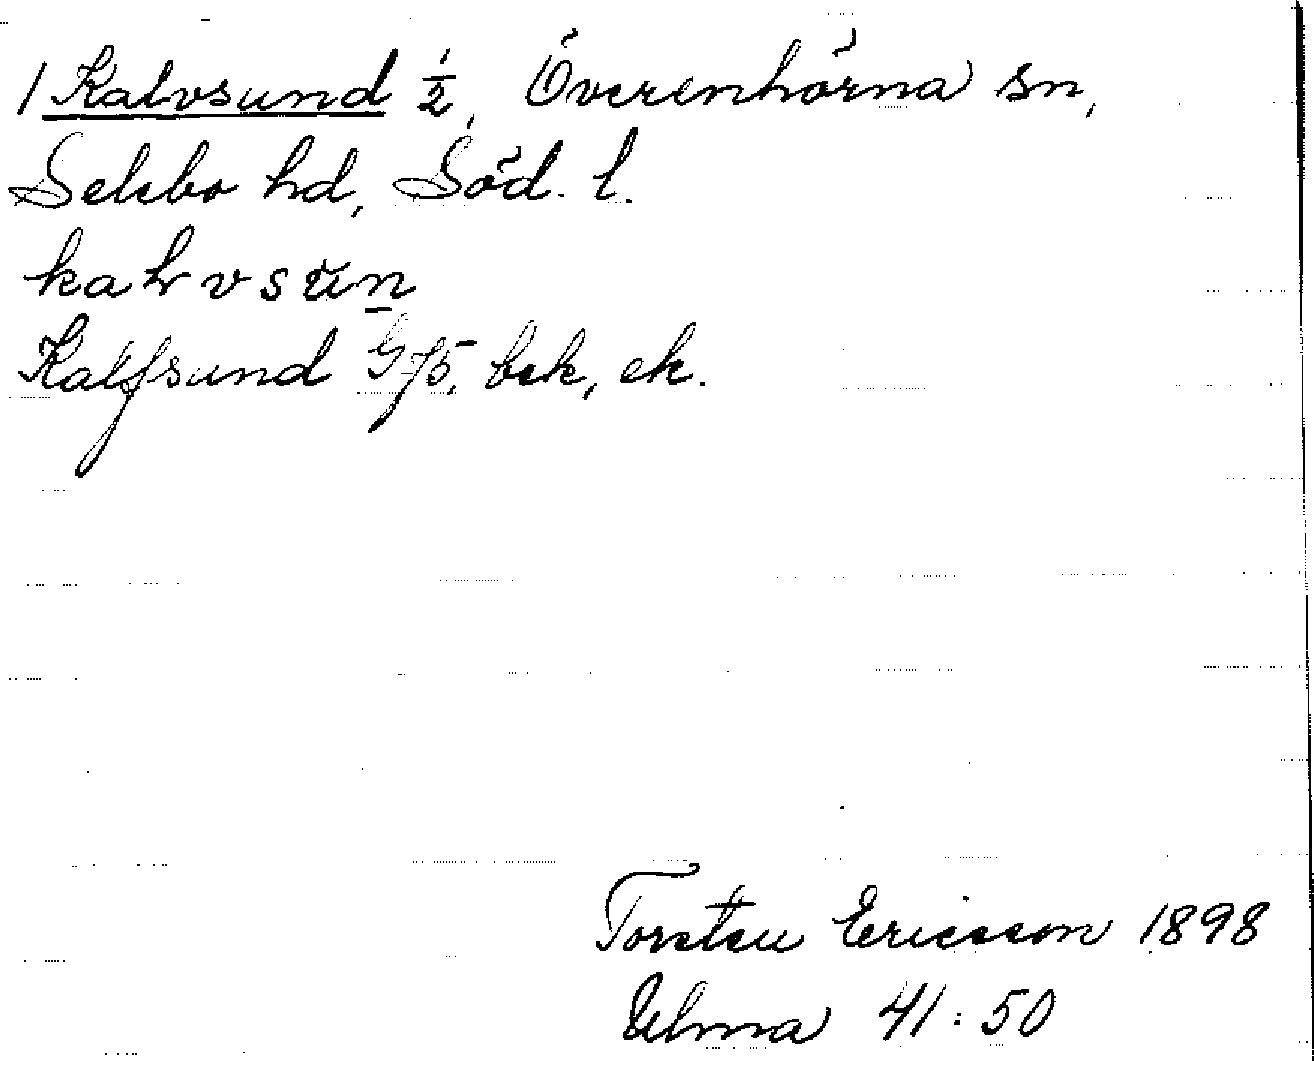 1 Kalvsund ½, Överenhörna sn,
Selebo hd, Söd. l.
Kalfsund G 75, bek, ek.
Torsten Ericsson 1898
Ulma 41:50